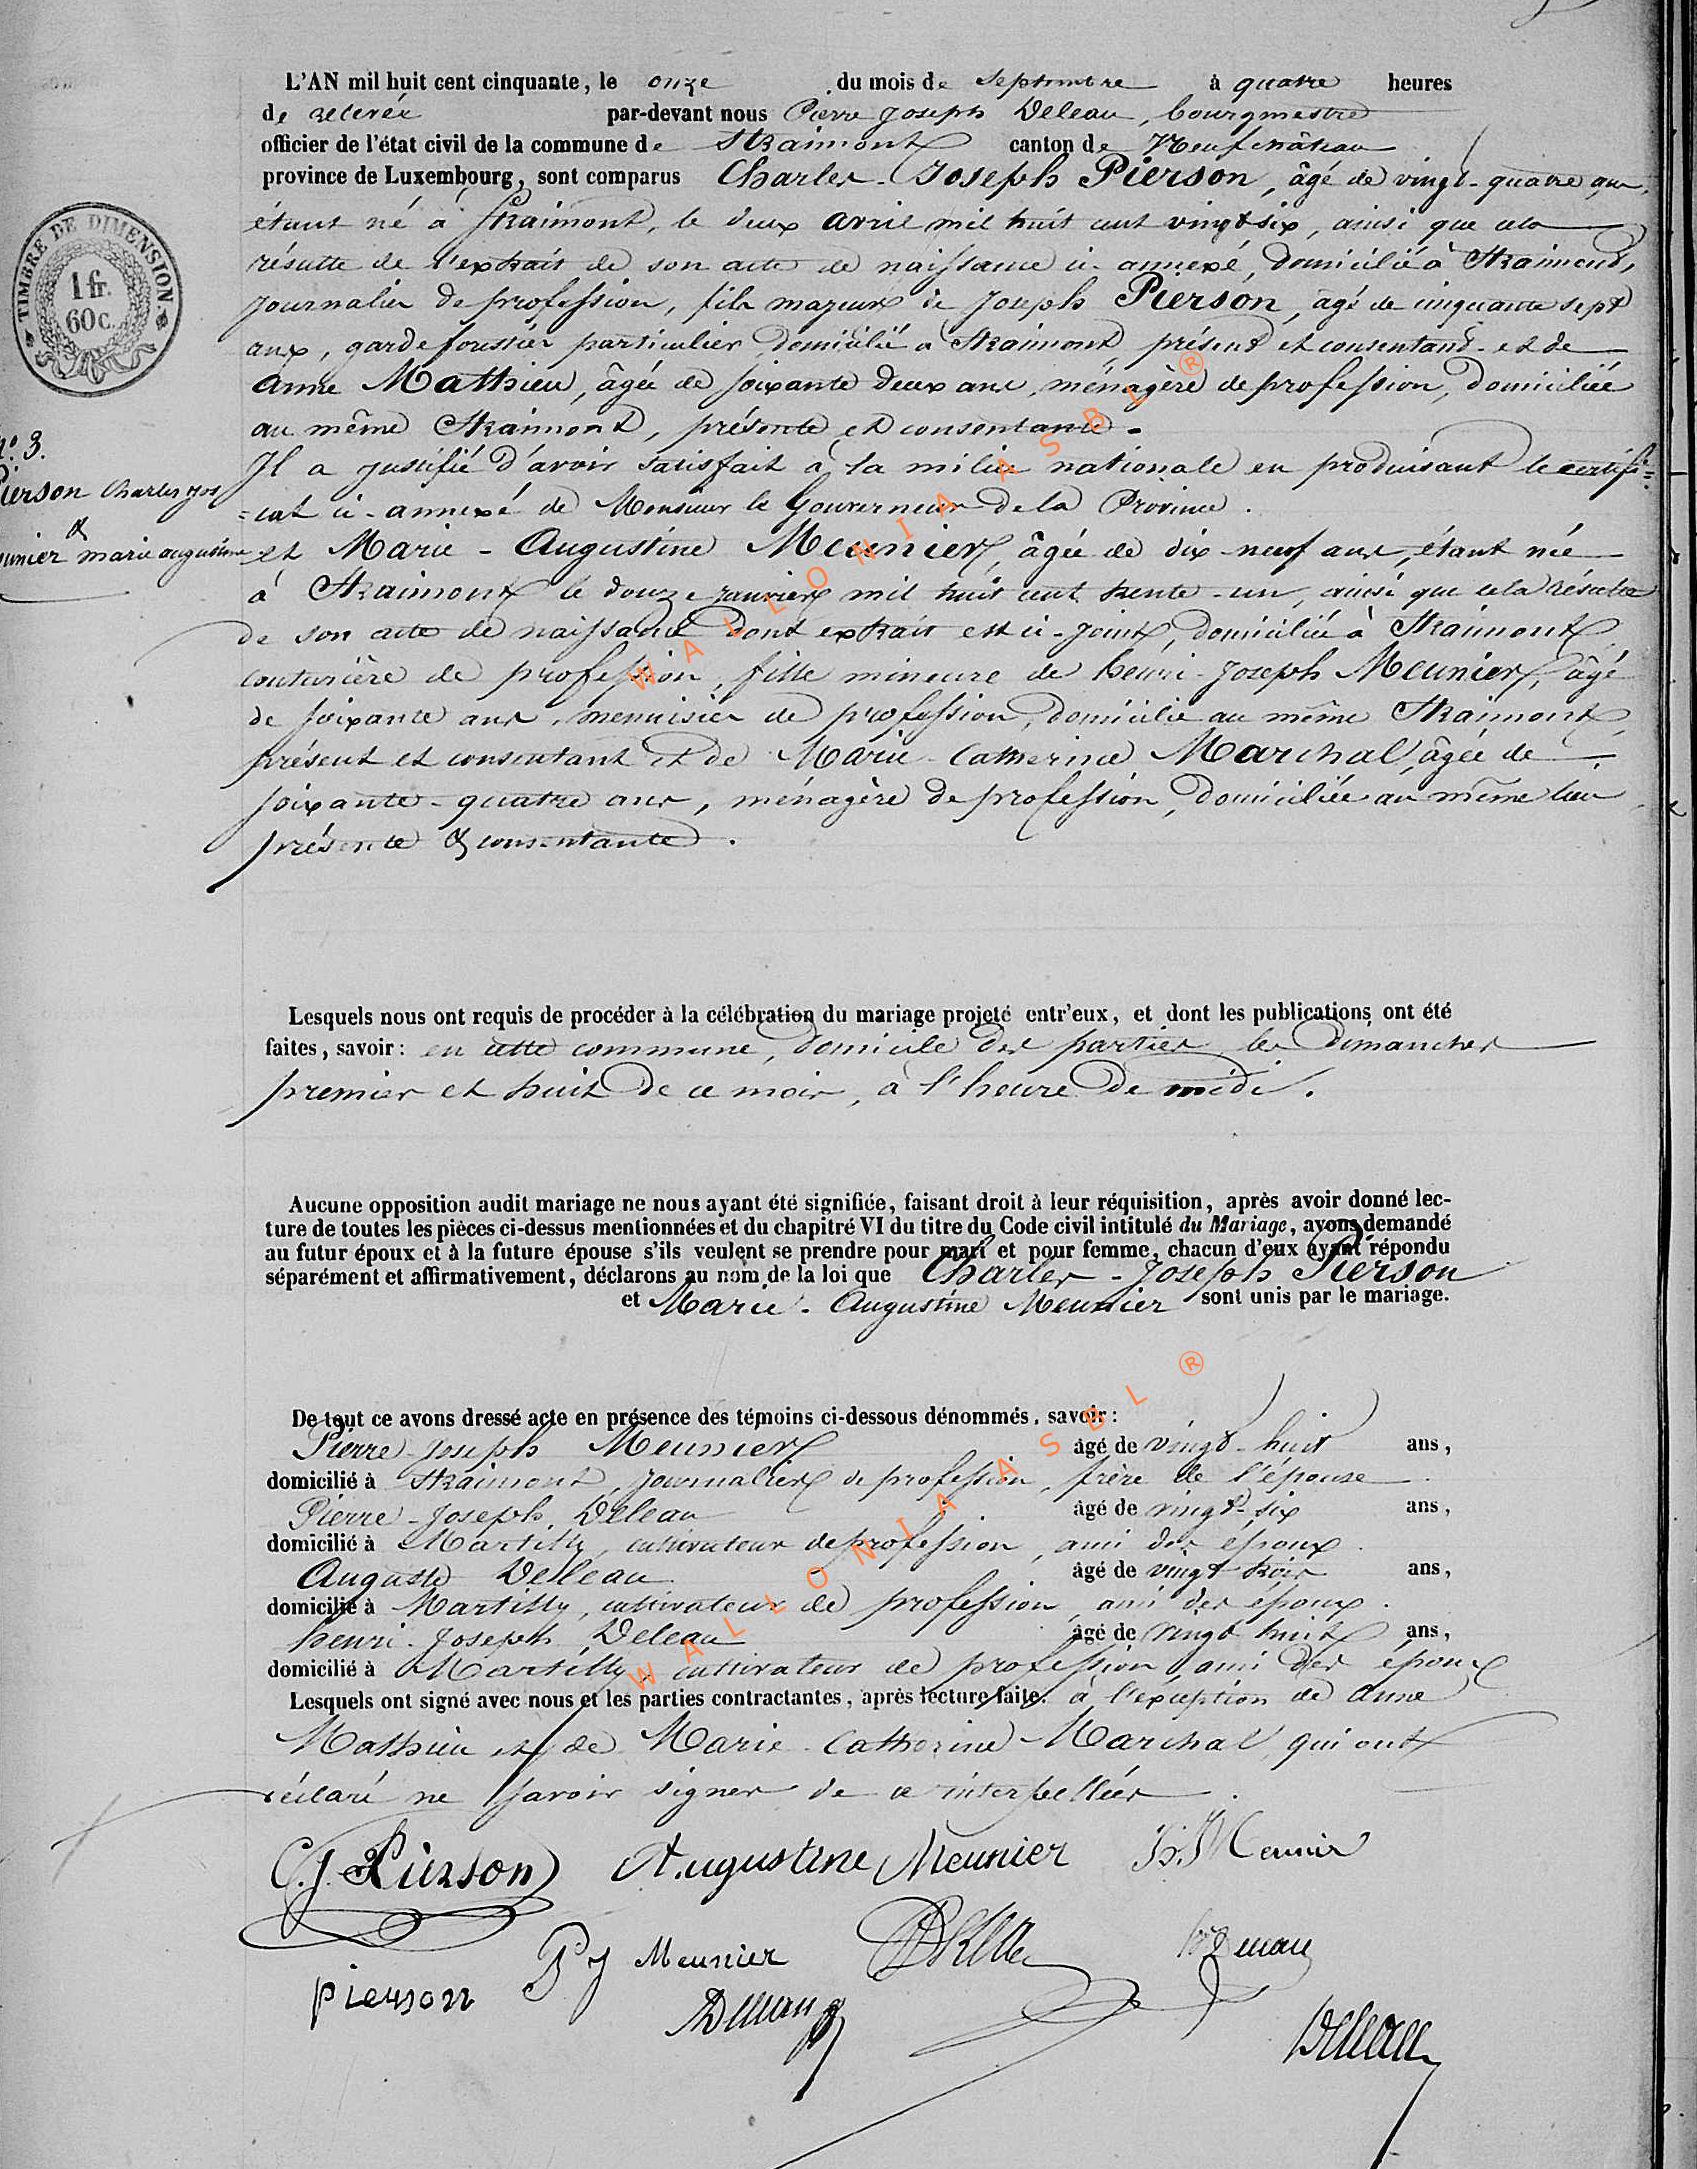 L'AN mil huit cent cinquante, le onze du mois de Septembre à quatre heures
de relevée par-devant nous Pierre Joseph Deleau, bourgmestre
officier de l'état civil de la commune de Straimont canton de Neufchâteau
province de Luxembourg, sont comparus Charles-Joseph Pierson, âgé de vingt-quatre ans,
étant né à Straimont, le deux avril mil huit cent vingt six, ainsi que cela
résulte de l'extrait de son acte de naissance ci-annexé, domicilié à Straimont,
journalier de profession, fils majeur de Joseph Pierson, âgé de cinquante sept
ans, garde forestier particulier domicilié à Straimont, présent et consentant et de
Anne Mathieu, âgée de soixante deux ans, ménagère de profession, domiciliée
au même Straimont, présente et consentante.
Il a justifié d'avoir satisfait à la milice nationale en produisant le certifi-
-cat ci-annexé de Monsieur le Gouverneur de la Province.
et Marie-Augustine Meunier, âgée de dix-neuf ans, étant née
à Straimont le douze janvier mil huit cent trente-un, ainsi que cela résulte
de son acte de naissance dont extrait est ci-joint, domiciliée à Straimont
couturière de profession, fille mineure de henri-Joseph Meunier, âgé
de soixante ans, menuisier de profession, domicilié au même Straimont,
présent et consentant et de Marie-Catherine Marchal, âgée de
soixante-quatre ans, ménagère de profession, domiciliée au même lieu
présente & consentante.
TIMBRE DE DIMENSION
1 fr.
60 c.
N° 3.
Pierson Charles Jos
&
Meunier marie augustine
Lesquels nous ont requis de procéder à la célébration du mariage projeté entr'eux, et dont les publications ont été
faites, savoir: en cette commune, domicile des parties les dimanches
premier et huit de ce mois, à l'heure de midi.
Aucune opposition audit mariage ne nous ayant été signifiée, faisant droit à leur réquisition, après avoir donné lec-
ture de toutes les pièces ci-dessus mentionnées et du chapitré VI du titre du Code civil intitulé du Mariage, ayons demandé
au futur époux et à la future épouse s'ils veulent se prendre pour mari et pour femme, chacun d'eux ayant répondu
séparément et affirmativement, déclarons au nom de la loi que Charles-Joseph Pierson
et Marie-Augustine Meunier sont unis par le mariage.
De tout ce avons dressé acte en présence des témoins ci-dessous dénommés, savoir:
Pierre-Joseph Meunier âgé de vingt-huit ans,
domicilié à Straimont, journalier de profession, frère de l'épouse
Pierre-Joseph Deleau âgé de vingt-six ans,
domicilié à Martilly, cultivateur de profession, ami des époux.
Auguste Delleau âgé de vingt trois ans,
domicilié à Martilly, cultivateur de profession, ami des époux.
henri-Joseph Deleau âgé de vingt huit ans,
domicilié à Martilly, cultivateur de profession ami des époux
Lesquels ont signé avec nous et les parties contractantes, après lecture faite. à l'exception de Anne
Mathieu et de Marie-Catherine Marchal, qui ont
déclaré ne savoir signer de ce interpellées.
C. J. Pierson Augustine Meunier h. J Meunier
P J Meunier
pierson
WALLONIA ASBL ®
WALLONIA ASBL ®